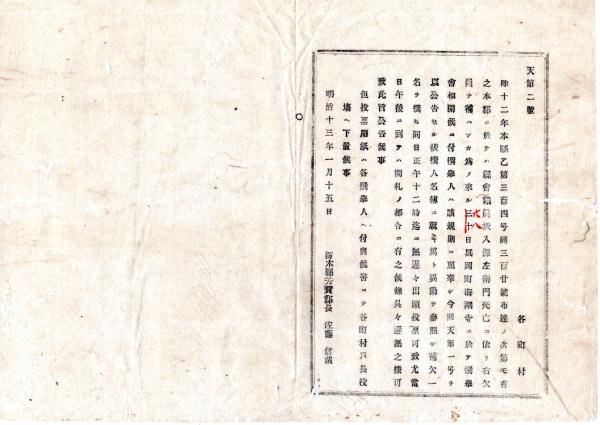 天第二號
各町村
昨十二年本縣乙第三百四号同三百廿號布達ノ次第モ有
之本郡ニ於テハ縣會議員坂入源左衛門死亡ニ依リ右欠
員ヲ補ハンカ為メ来ル三十日真岡町海潮寺ニ於テ撰擧
八
會相開候ニ付撰擧人ハ該規則ニ照準シ今回天第一号ヲ
以公告セル被撰人名簿ニ就キ篤ト異動ヲ参照シ補欠一
名ヲ撰ヒ同日正午十二時迄ニ無遅々出頭投票可致尤當
日午後ニ到テハ開札ノ都合ニ有之候條呉々遅緩之様可
致此旨公告候事
但投票用紙ハ各撰擧人ヘ付與候筈ニテ各町村戸長役
場ヘ下置候事
明治十三年一月十五日
栃木縣芳賀郡長 佐藤 信